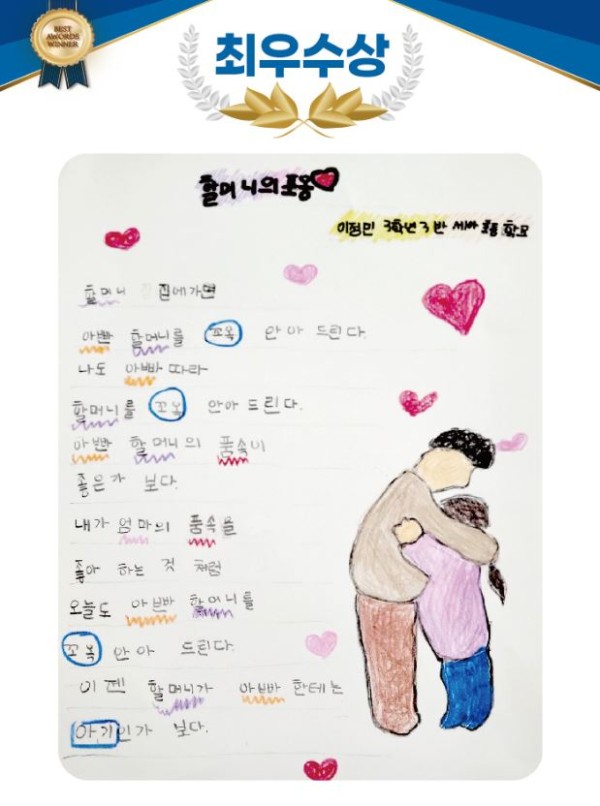 BEST
AWORDS
WINNER
최우수상
할머니의포옹
이정민 3학년3반
할머니 집에가면
아빤 할머니를 꼬옥 안아 드린다.
나도 아빠따라
할머니를 꼬옥 안아드린다.
아빤 할머니의 품속이
좋은가 보다.
내가 엄마의 품속을
좋아 하는 것 처럼
오늘도 할머니를
꼬옥 안아 드린다.
이젠 할머니가 아빠 한테는
아기인가 보다.